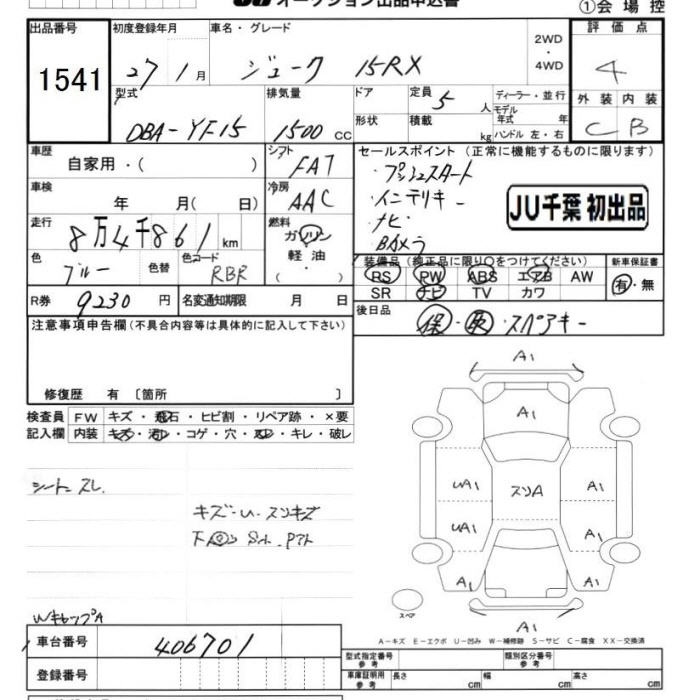 オークション出品申込書
①会場控
出品番号
1541
初度登録年月
27年1月
車名・グレード
ジューク 15RX
2WD
・
4WD
評価点
4
型式
DBA-YF15
排気量
1500 CC
ドア
形状
定員 5 人
積載 kg
ディーラー・並行
モデル年式 年
ハンドル 左・右
外装 内装
C B
車歴
自家用・( )
シフト
FAT
セールスポイント(正常に機能するものに限ります)
・プッシュスタート
・インテリキー
・ナビ
・BAメラ
JU千葉 初出品
車検
年 月( 日)
冷房
AAC
走行
8万4千861 km
燃料
ガソリン
軽油
( )
色
ブルー
色替
色コード
RBR
装備品(純正品に限り○をつけてください)
RS PW ABS エアB AW
SR ナビ TV カワ
新車保証書
有・無
R券 9230 円
名変通知期限 月 日
後日品
保・取・スペアキー
注意事項申告欄(不具合内容等は具体的に記入して下さい)
修復歴 有 〔箇所 〕
検査員
記入欄
FW キズ・飛石・ヒビ割・リペア跡・×要
内装 キズ・汚レ・コゲ・穴・スレ・キレ・破レ
シートスレ
キズ・U・スリキズ
WキャップA
A1
A1
UA1
スリA
A1
UA1
A1
A1
A1
A1
スペア
A-キズ E-エクボ U-凹み W-補修跡 S-サビ C-腐食 XX-交換済
車台番号
406701
登録番号
型式指定番号
参考
類別区分番号
参考
車庫証明用
参考
長さ cm
幅 cm
高さ cm